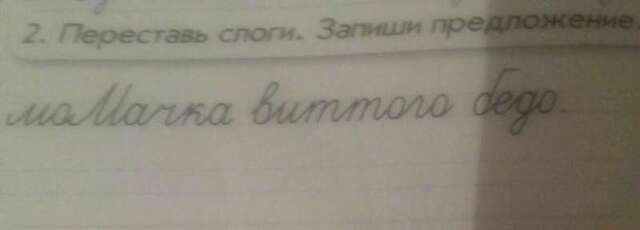 2. Переставь слоги. Запиши предложение.
моМачка виттого бедо.